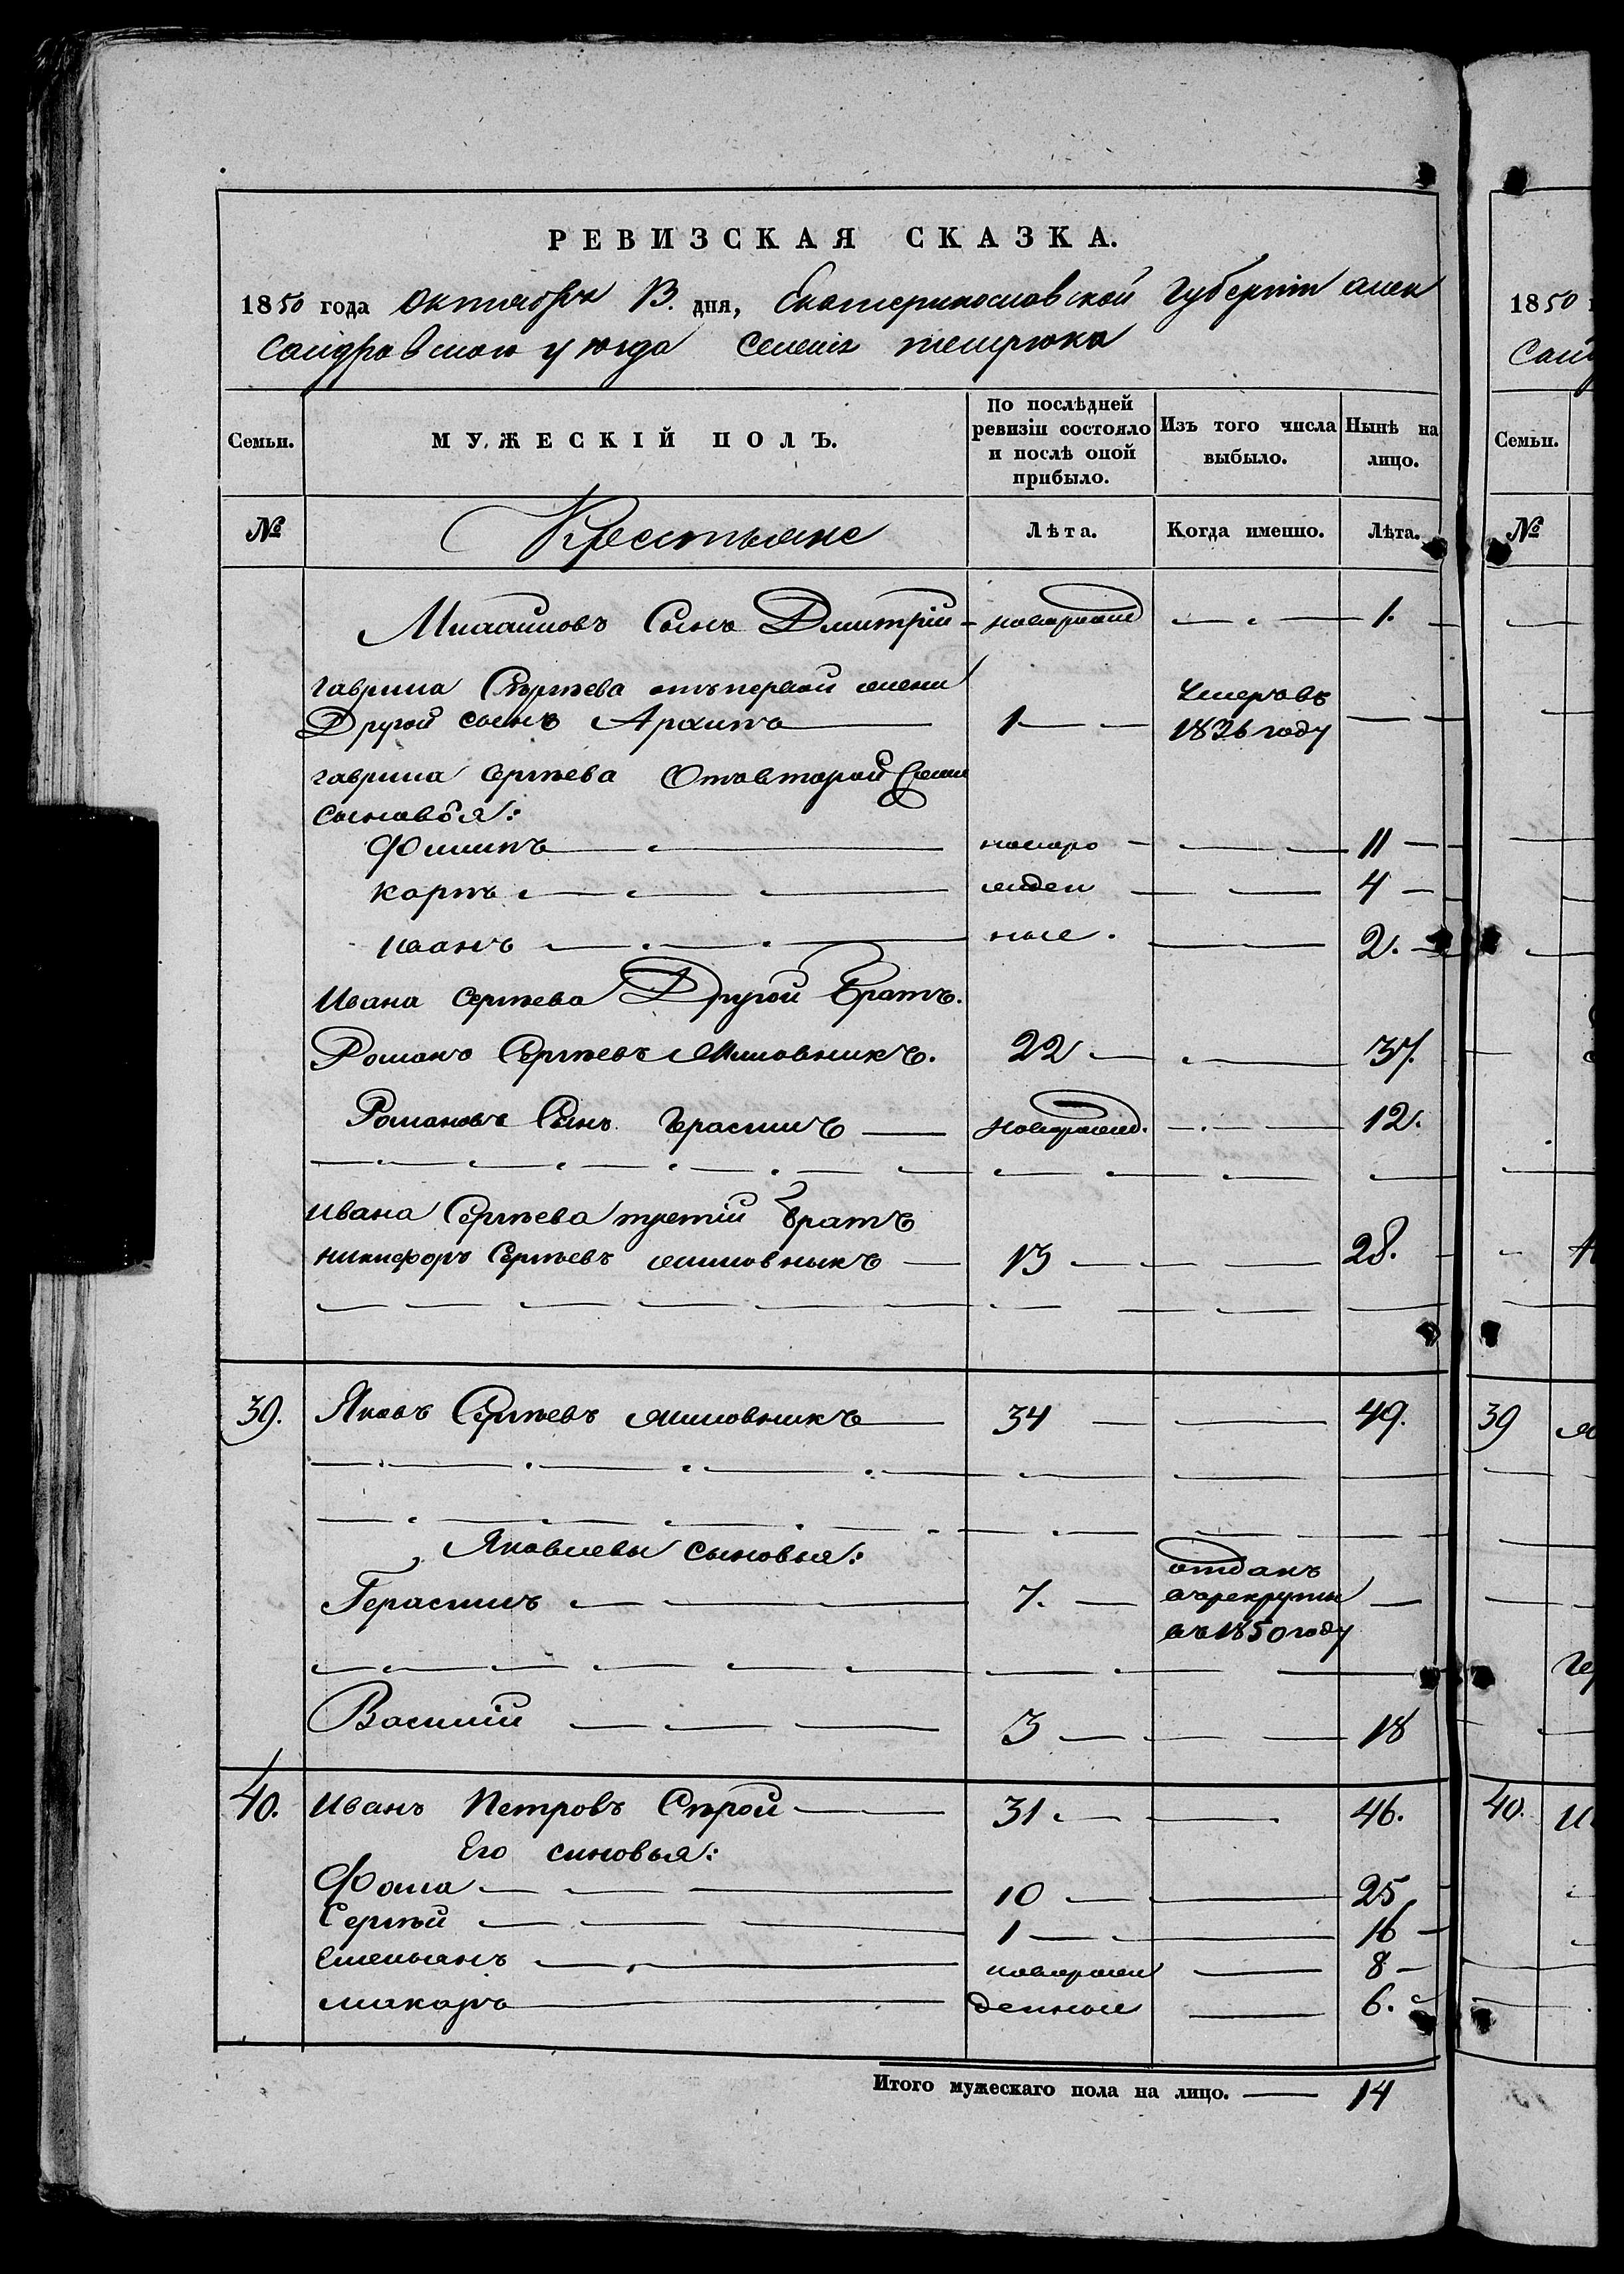 РЕВИЗСКАЯ СКАЗКА.
1850 года Октября 13. дня, Екатеринославской Губерніи Алек
сандровского уюзда Селенія темрюка
Семьи.
МУЖЕСКІЙ ПОЛЪ.
По послѣдней ревизіи состояло и послѣ оной прибыло.
Изъ того числа выбыло.
Нынѣ на лицо.
№
Крестьяне
Лѣта.
Когда именно.
Лѣта.
Сынъ Дмитрій - 1.
Гаврила Сергѣева отъ первой жены
Другой сынъ Архипъ 1 Умеръ въ 1836 году
Гаврила Сергѣева Отъ второй жены
сыновья:
Филипъ новоро 11
Карпъ жден 4
Иванъ ные. 2.
Ивана Сергѣева Другой Братъ.
Романъ Сергѣевъ Миловникъ. 22 37.
Романовъ Сынъ Ерасимъ новорожд. 12.
Ивана Сергѣева третій Братъ
Никифоръ Сергѣевъ миловныкъ 13 28.
39. Яковъ Сергѣевъ миловникъ 34 49.
Яковлевы сыновья:
Герасимъ 7. отданъ в рекруты въ 1850 году
Василій 3 18
40. Иванъ Петровъ Сѣрой 31 46.
Его синовья:
Фома 10 25.
Сергѣй 1 16
Степанъ новорожд 8
Макаръ денные 6.
Итого мужескаго пола на лицо. 14
1850
Семьи.
№
39
40.